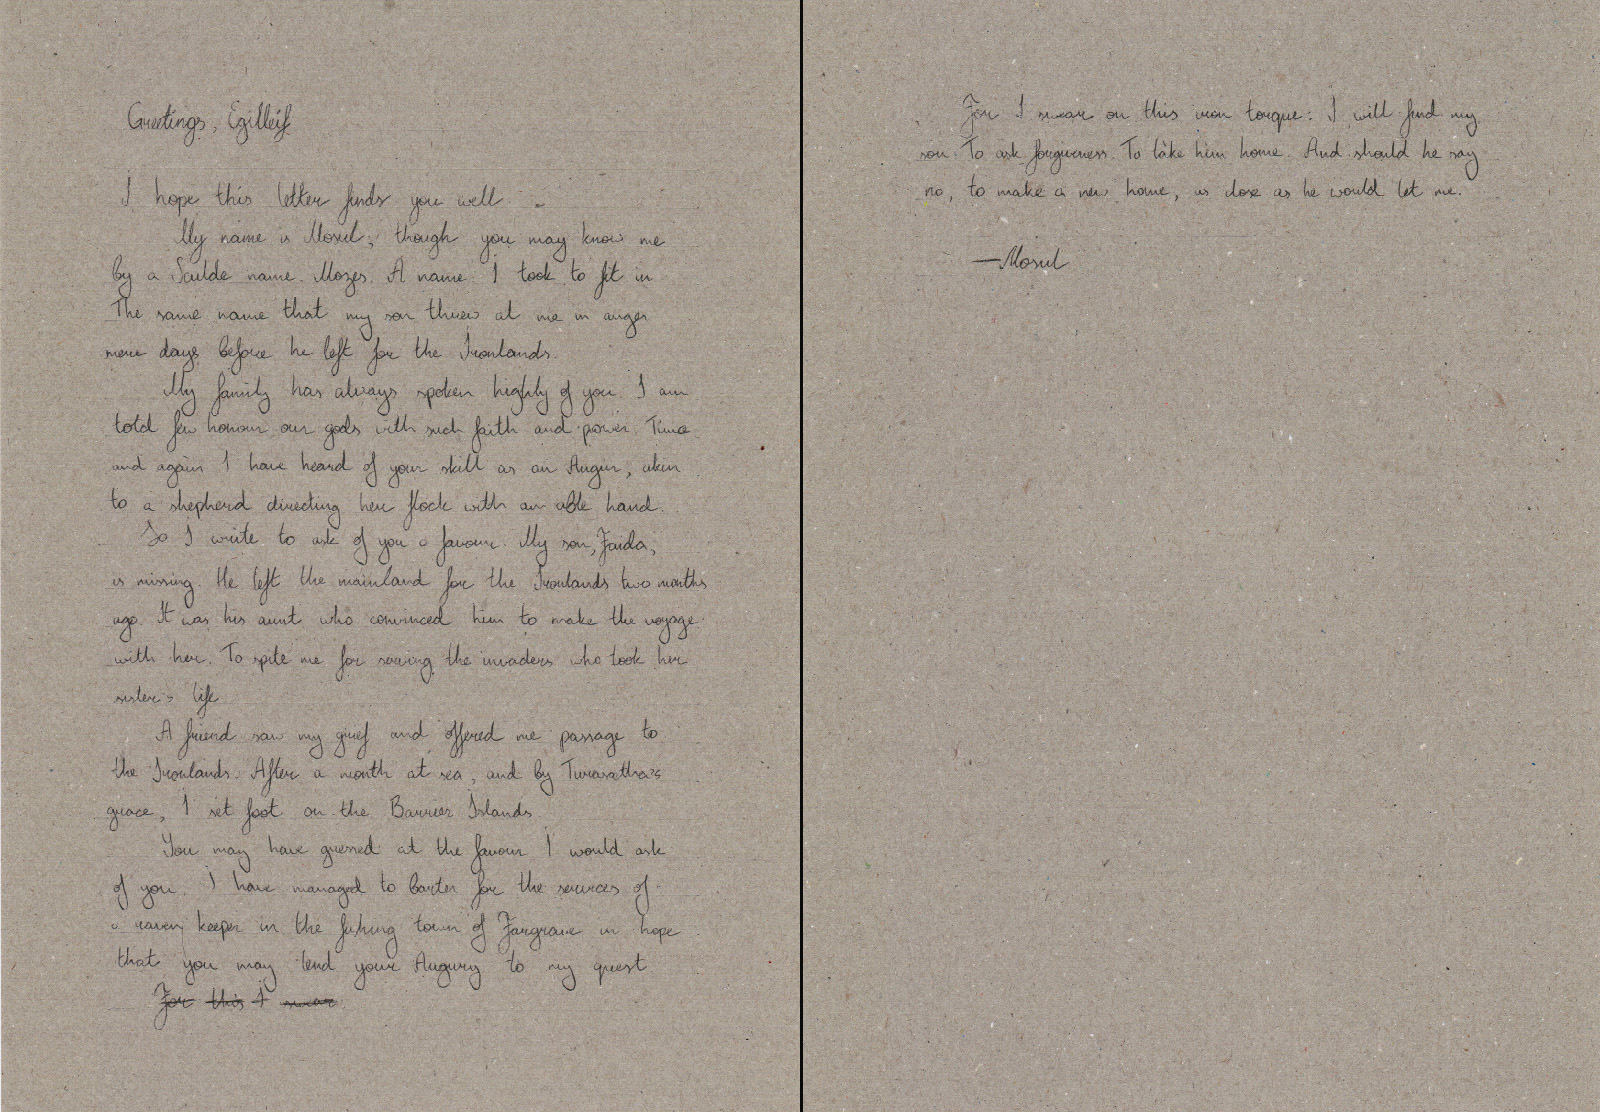 Greetings, Egilleif
I hope this letter finds you well.
My name is Mosul, though you may know me
by a Scilde name. Mozes. A name I took to fit in.
The same name that my son threw at me in anger
mere days before he left for the Ironlands.
My family has always spoken highly of you. I am
told few honour our gods with such faith and power. Time
and again I have heard of your skill as an Augur, akin
to a shepherd directing her flock with an able hand.
So I write to ask of you a favour. My son, Faida,
is missing. He left the mainland for the Ironlands two months
ago. It was his aunt who convinced him to make the voyage
with her. To spite me for serving the invaders who took her
sister's life.
A friend saw my grief and offered me passage to
the Ironlands. After a month at sea, and by Turasatha's
grace, I set foot on the Barrier Islands.
You may have guessed at the favour I would ask
of you. I have managed to barter for the services of
a raven keeper in the fishing town of Fargrave in hope
that you may lend your Augury to my quest
For this I swear
For I swear on this iron torque: I will find my
son. To ask forgiveness. To take him home. And should he say
no, to make a new home, as close as he would let me.
—Mosul